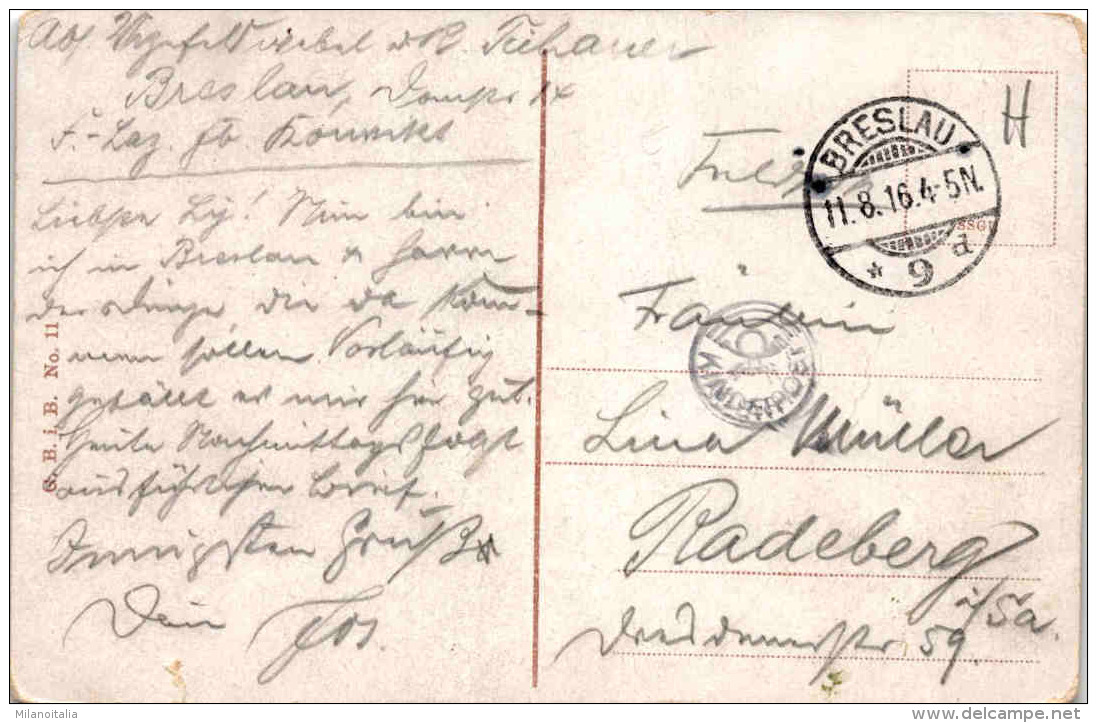 Abs. Vizefeldwebel d.R. Tichauer
Breslau, Domstr 14
F.-Laz. Konvikt
Liebste Ly! Nun bin
ich in Breslau & harre
der Dinge die da kom-
men sollen. Vorläufig
gefällt es mir hier gut.
Heute Nachmittag folgt
ausführlicher Brief.
Innigsten Gruß
Dein Jos.
G. B. i. B. No. 11
H
BRESLAU
11.8.16.4-5N.
* 9 d
Fräulein
Lina Müller
Radeberg
i/Sa.
Dresdenerstr 59.
Milanoitalia
delcampe.net